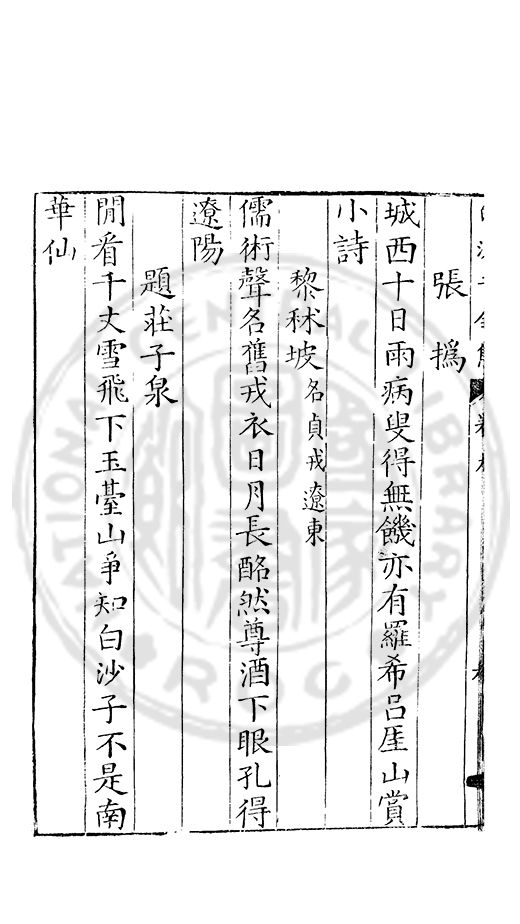 張撝
城西十日雨病叟得無饑亦有羅希呂厓山賞
小詩
黎秫坡名貞戎遼東
儒術聲名舊戎衣日月長酩然尊酒下眼孔得
遼陽
題莊子泉
閒看千丈雪飛下玉臺山爭知白沙子不是南
華仙